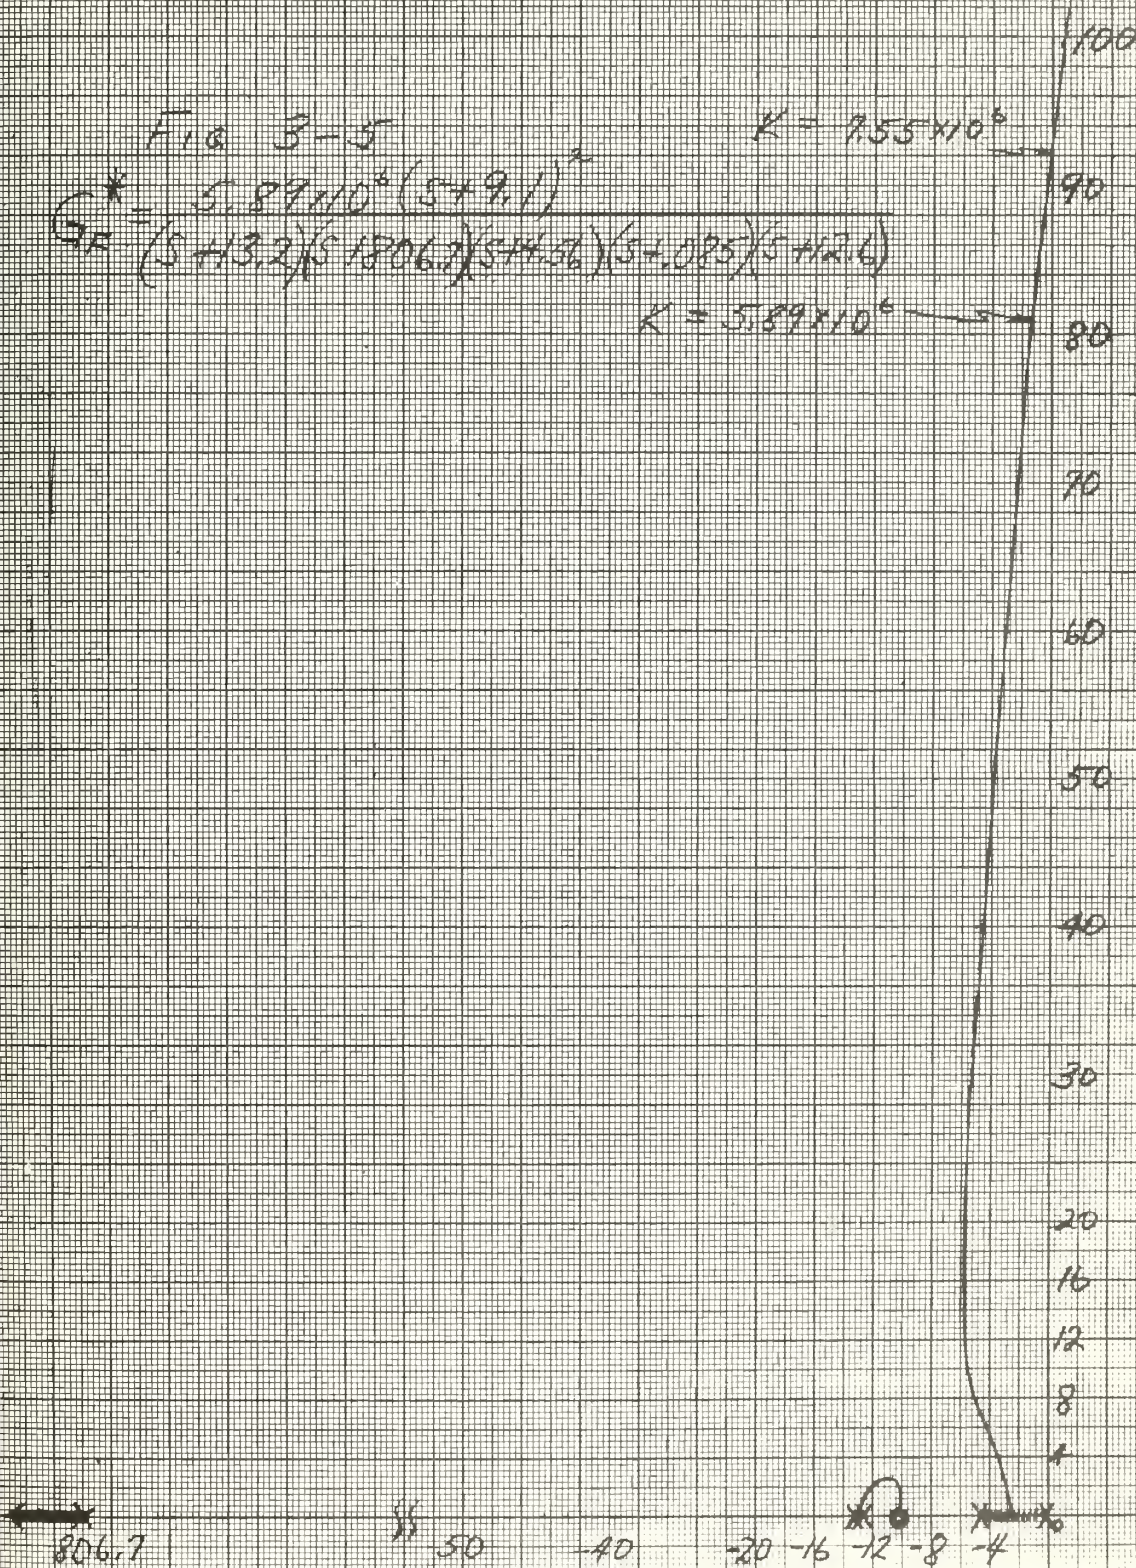 100
Fig 3-5
K = 7.55×10⁶
90
G_F* = 5.89×10⁶ (S+9.1)²
(S+13.2)(S+806.7)(S+4.56)(S+.085)(S+12.6)
K = 5.89×10⁶
80
70
60
50
40
30
20
16
12
8
4
806.7 -50 -40 -20 -16 -12 -8 -4 0